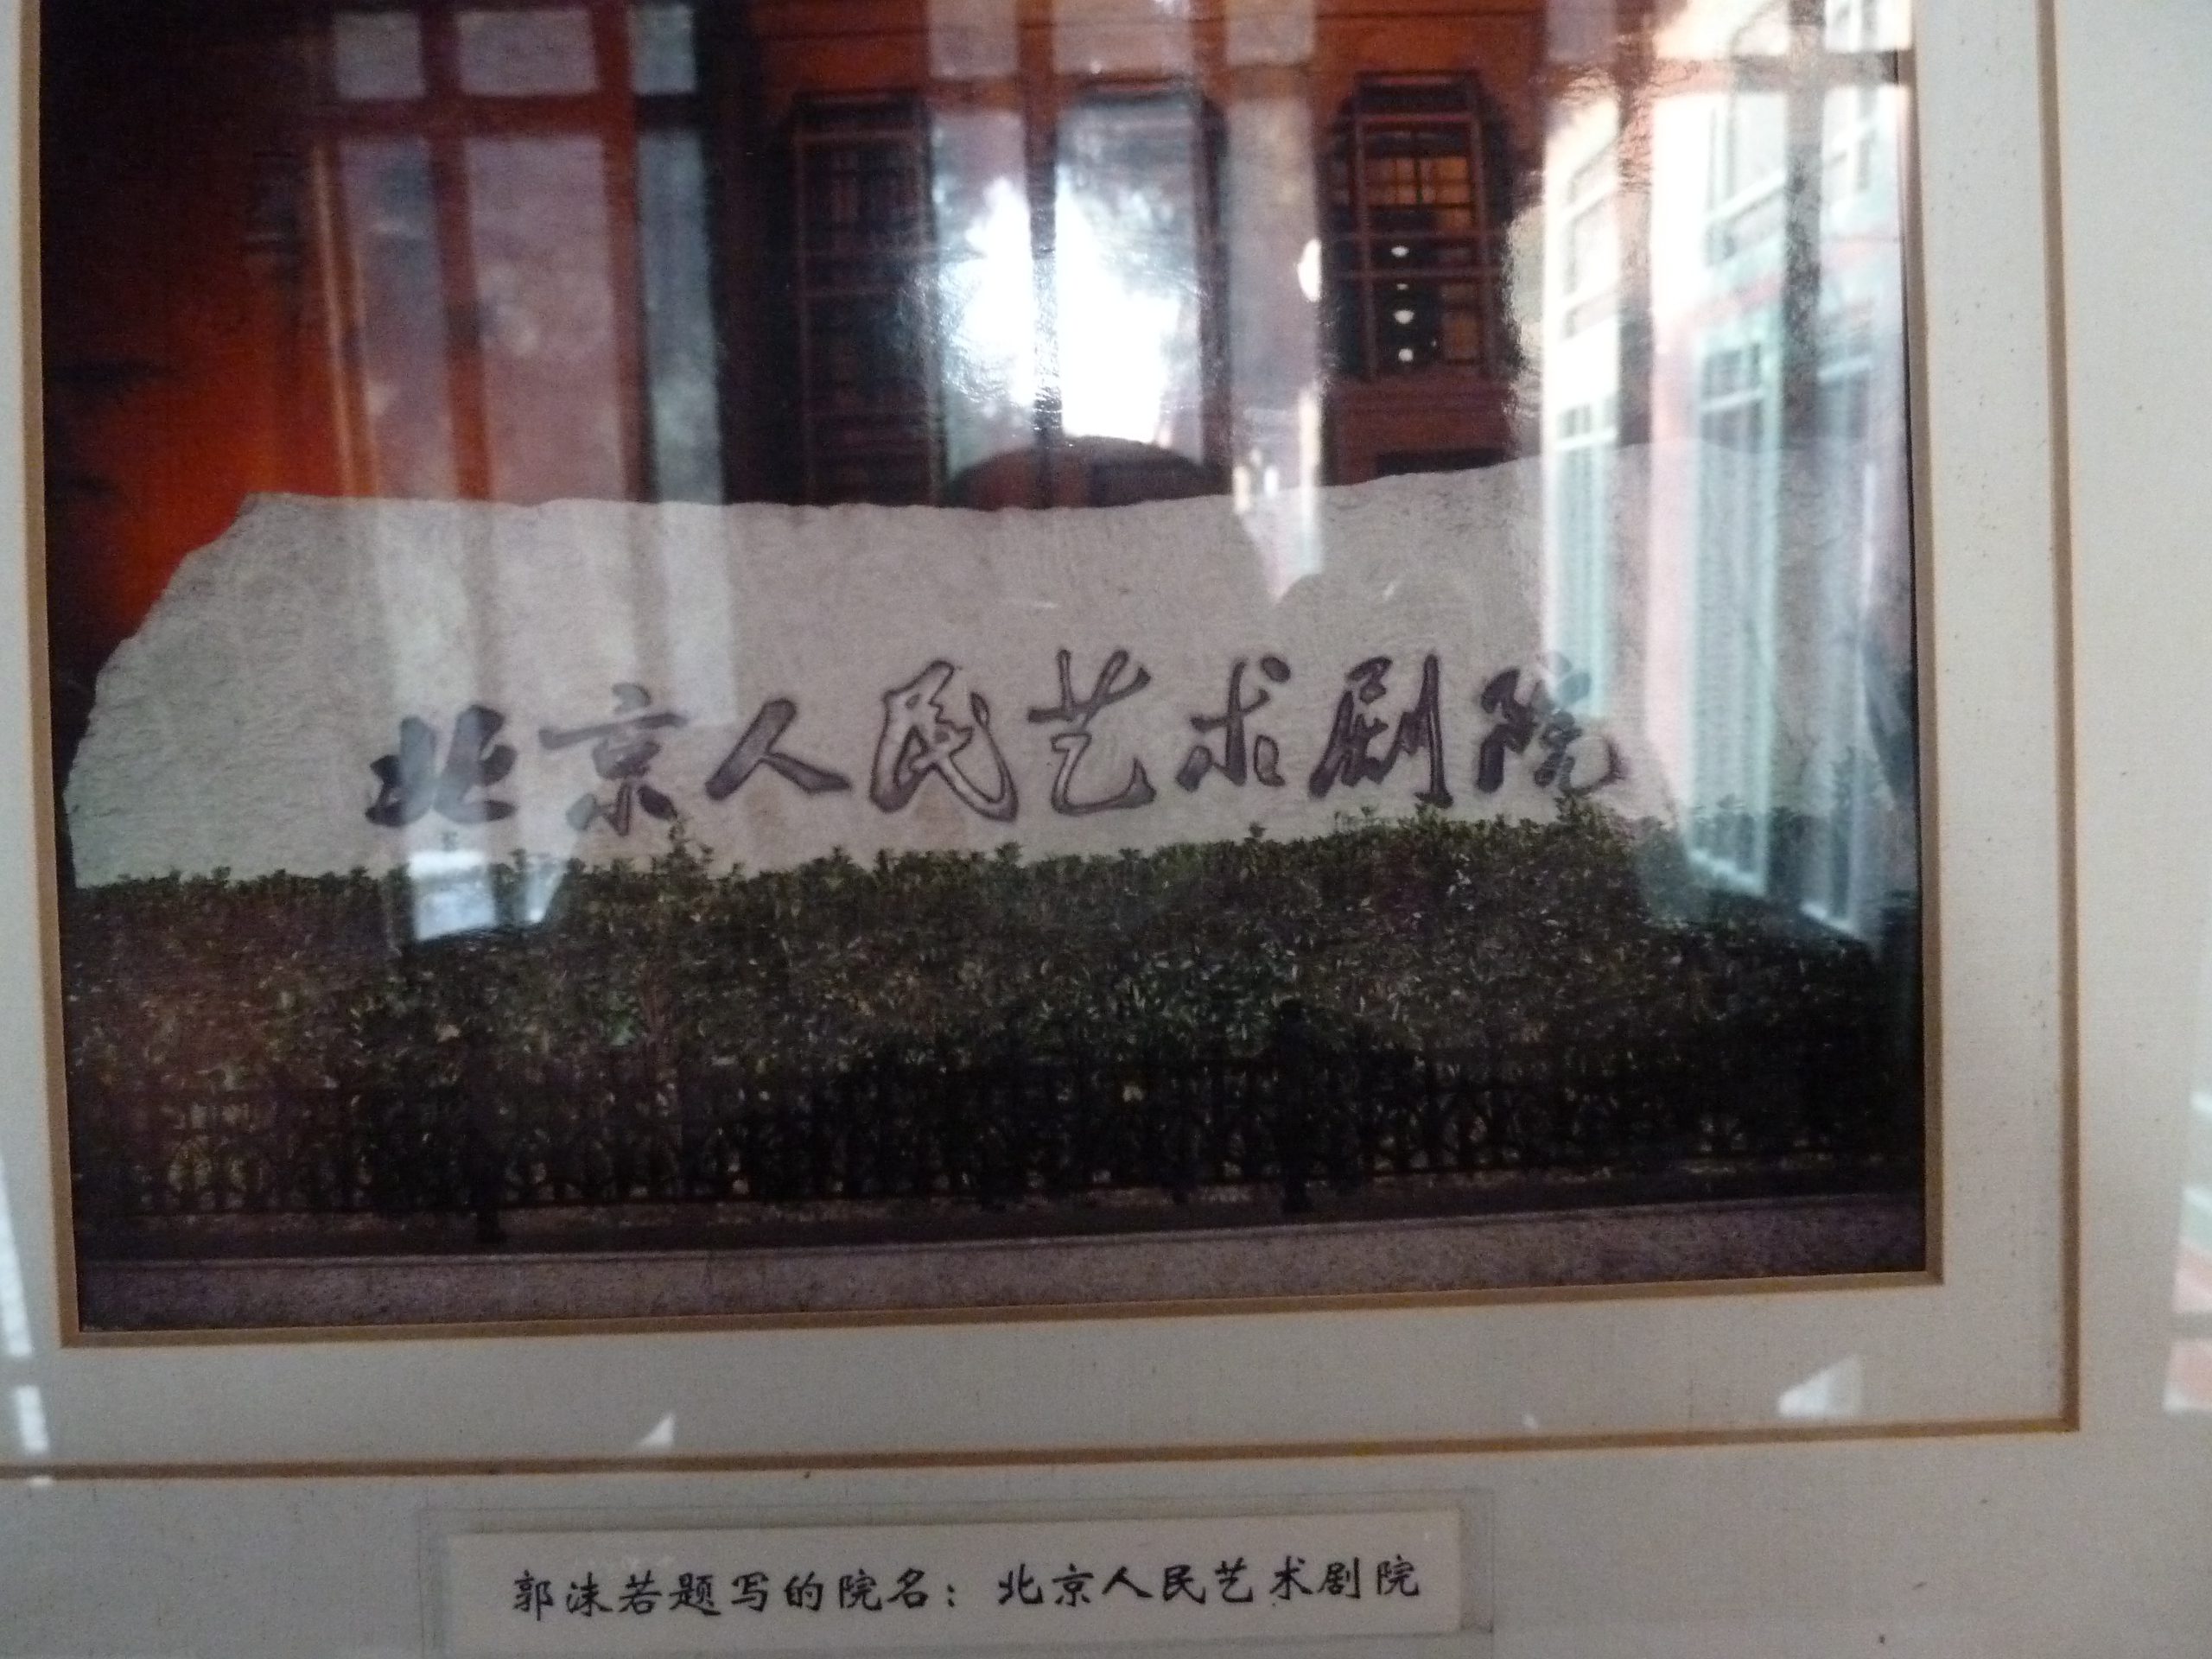 北京人民艺术剧院
郭沫若题写的院名：北京人民艺术剧院